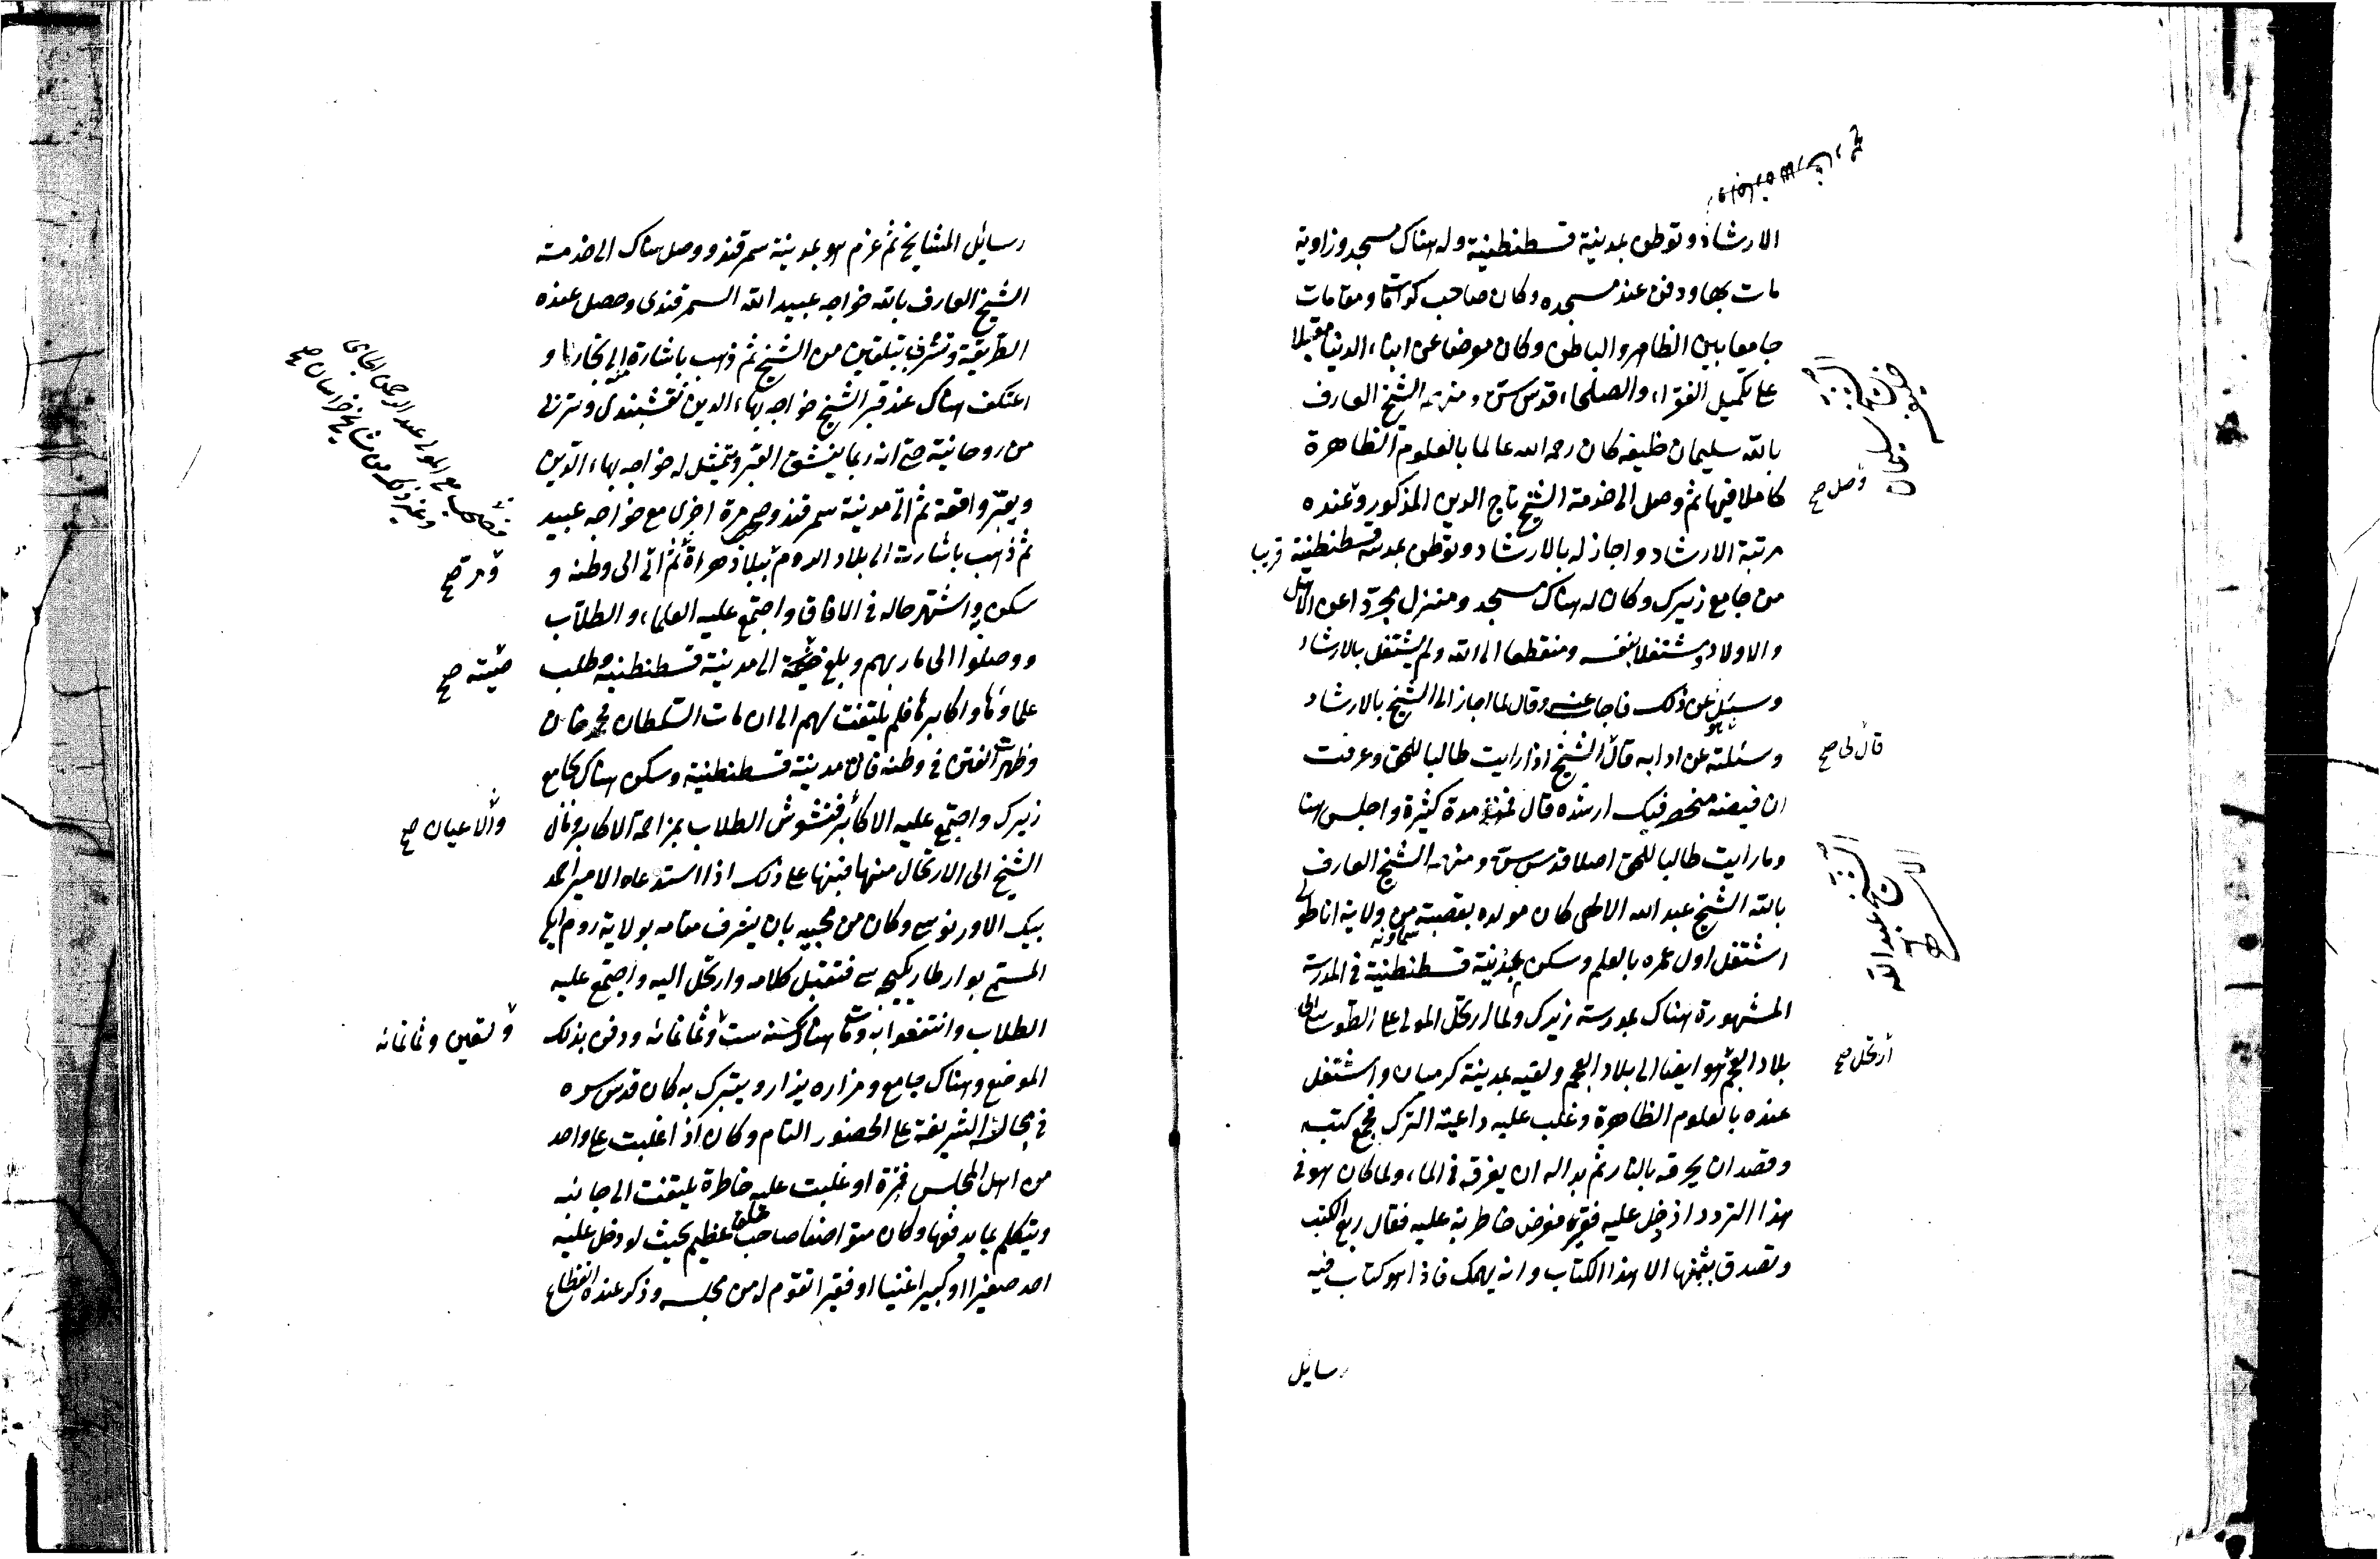 الارشاد وتوطن بمدينة قسطنطنية وله هناك مسجد وزاوية
مات بها ودفن عند مسجده وكان صاحب كرامات ومقامات
جامعا بين الظاهر والباطن وكان معرضا عن ابناء الدنيا مقبلا
على تكميل الفقراء والصلحاء قدس سره ومنهم الشيخ العارف
بالله سليمان خليفه كان رحمه الله عالما بالعلوم الظاهرة
كاملا فيها ثم وصل الى خدمة الشيخ تاج الدين المذكور وعنده
مرتبة الارشاد واجاز له بالارشاد وتوطن بمدينة قسطنطنية قريب
من جامع زيرك وكان له هناك مسجد ومنزل مجردا عن الاهل
والاولاد مشتغلا بنفسه ومنقطعا الى الله ولم يشتغل بالارشاد
وسئل عن ذلك فاجاب عنه وقال لما اجاز الى الشيخ بالارشاد
وسئلته عن ادابه قال الشيخ اذا رايت طالبا للحق وعرفت
ان فيضه منحصر فيك ارشده قال فمنذ مدة كثيرة واجلس هنا
وما رايت طالبا للحق اصلا قدس سره ومنهم الشيخ العارف
بالله الشيخ عبد الله الالهى كان مولده بقصبة سماونه من ولاية اناطولى
اشتغل اول عمره بالعلم وسكن بمدينة قسطنطنية فى المدرسة
المشهورة هناك بمدرسة زيرك ولما ارتحل المولى على الطوسى الى
بلاد العجم هو ايضا الى بلاد العجم ولقيه بمدينة كرميان واشتغل
عنده بالعلوم الظاهرة وغلب عليه داعية الترك فجمع كتبه
وقصد ان يحرقه بالنار ثم بدا له ان يغرقه فى الماء ولما كان هو فى
هذا التردد اذ دخل عليه فقير فعرض خاطريه عليه فقال بع الكتب
وتصدق بثمنها الا هذا الكتاب وانه يهمك فاذا هو كتاب فيه
رسايل
خليفه الشيخ سليمان
وصل صح
قال لى صح
الشيخ عبد الله الالهى
ارتحل صح
رسايل المشايخ ثم عزم هو بمدينة سمرقند ووصل هناك الى خدمة
الشيخ العارف بالله خواجه عبيد الله السمرقندى وحصل عنده
الطريقة وتشرف بتلقين من الشيخ ثم ذهب باشارة منه الى بخارا و
اعتكف هناك عند قبر الشيخ خواجه بهاء الدين نقشبندى وتربى
من روحانيته حتى انه ربما ينشق القبر ويتمثل له خواجه بهاء الدين
ويعبر واقعته ثم اتى مدينة سمرقند وصحب مرة اخرى مع خواجه عبيد
ثم ذهب باشارته الى بلاد الروم ببلاد هراة ثم اتى الى وطنه و
سكن به واشتهر حاله فى الافاق واجتمع عليه العلماء والطلاب
ووصلوا الى ماربهم وبلغ صيته الى مدينة قسطنطنيه وطلب
علماؤها واكابرها فلم يلتفت لهم الى ان مات السلطان محمد خان
وظهرت الفتن فى وطنه فاتى مدينة قسطنطنية وسكن هناك بجامع
زيرك واجتمع عليه الاكابر فتشوش الطلاب بمزاحمة الاكابر ومال
الشيخ الى الارتحال منها فبينها على ذلك اذا استدعاه الامير احمد
بيك الاورنوسى وكان من محبيه بان يشرف مقامه بولاية روم ايلى
المستمى بوارطار يكيجه سى فتقبل كلامه وارتحل اليه واجتمع عليه
الطلاب وانتفعوا به ومات هناك سنة ست وثمانمائه ودفن بذلك
الموضع وهناك جامع ومزاره يزار ويتبرك به كان قدس سره
فى مجالسه الشريفة على الحضور التام وكان اذا غلبت على واحد
من اهل المجلس غمزة او غلبت عليه خاطرة يلتفت الى جانبه
ويتكلم بما يدفعها وكان متواضعا صاحب خلق عظيم بحيث لو دخل عليه
احد صغيرا او كبيرا غنيا او فقيرا تقوم له من مجلسه وذكر عنده انقطاع
فصحب مع المولى عبد الرحمن الجامى
وغير ذلك من مشايخ خراسان صح
ومر صح
صيته صح
والاعيان صح
وتسعين وثمانمائه